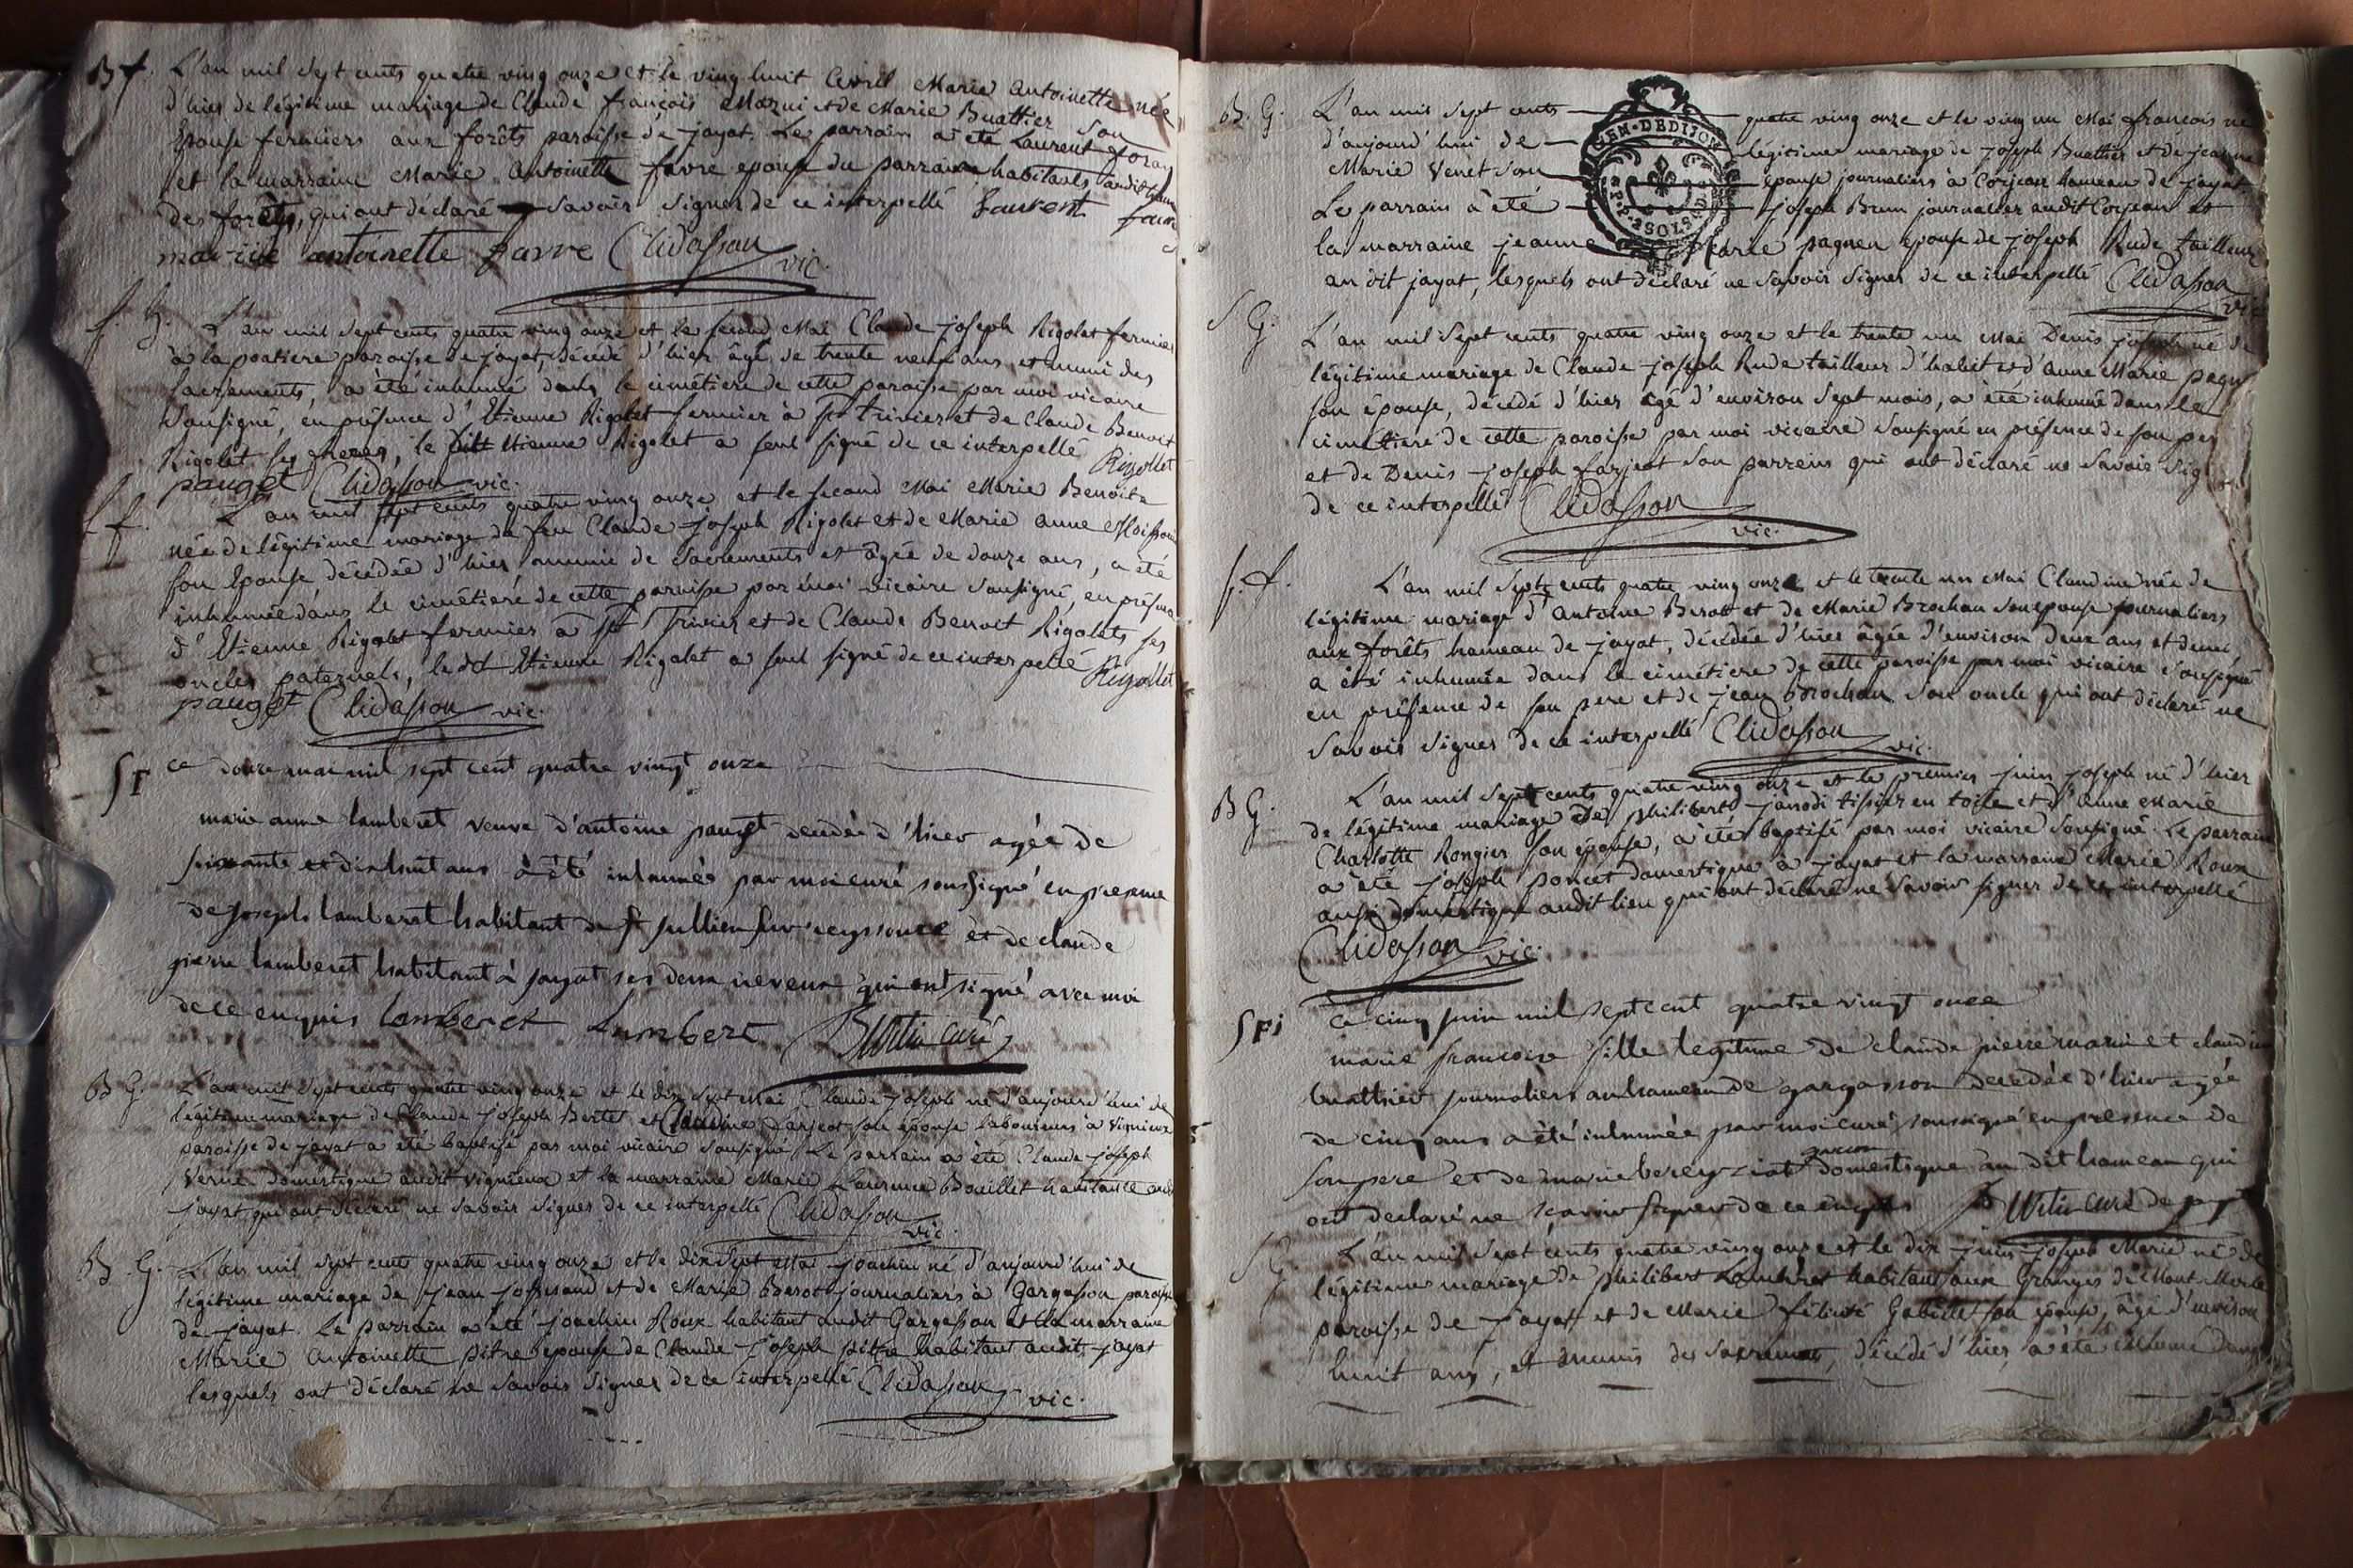 B f. L'an mil sept cents quatre ving onze et le ving huit avril Marie Antoinette née
d'hier de légitime mariage de Claude françois Mazui et de Marie Buattier son
Epouse fermiers aux forêts paroisse de jayat. Le parrain a été Laurent foray
et la marraine Marie Antoinette favre epouse du parrain habitants audit
des forêts, qui ont déclaré savoir signer de ce interpellé Laurent
marie antoinette favre Clidasson vic.
f. G. L'an mil sept cents quatre ving onze et le second Mai Claude joseph Rigolet fermier
à la poatiere paroisse de jayat, décédé d'hier âgé de trente neuf ans, et muni des
sacrements, a été inhumé dans le cimétiere de cette paroisse par moi vicaire
sousigné, en présence d'Etienne Rigolet fermier à st trivier et de Claude Benoit
Rigolet ses freres, le dit Etienne Rigolet a seul signé de ce interpellé Rigollet
pauget Clidasson vic.
f f. L'an mil sept cents quatre ving onze et le second Mai Marie Benoite
née de légitime mariage de feu Claude joseph Rigolet et de Marie Anne
son Epouse décédée d'hier munie de sacrements et âgée de douze ans, a été
inhumée dans le cimétiere de cette paroisse par moi vicaire sousigné, en présence
d'Etienne Rigolet fermier à st Trivier et de Claude Benoit Rigolets ses
oncles paternels, le dit Etienne Rigolet a seul signé de ce interpellé Rigollet
pauget Clidasson vic.
S F ce douze mai mil sept cent quatre vingt onze
marie anne lamberet veuve d'antoine pauget decedée d'hier agée de
soixante et dixhuit ans a été inhumée par moi curé soussigné en presence
de joseph lamberet habitant de st jullien sur reyssouze et de claude
pierre lamberet habitant à jayat ses deux neveux qui ont signé avec moi
de ce enquis lamberet lambert curé
B G. L'an mil sept cents quatre ving onze et le dix sept Mai Claude joseph né d'aujourd'hui de
légitime mariage de Claude joseph Bertet et Claudine farjeot son épouse laboureurs à vignieux
paroisse de jayat a été baptisé par moi vicaire sousigné Le parrain a été Claude joseph
Verne domestique audit vignieux et la marraine Marie Laurence Bouillet habitante
jayat qui ont déclaré ne savoir signer de ce interpellé Clidasson
vic.
B. G. L'an mil sept cents quatre ving onze et le dix sept Mai joachin né d'aujourd'hui de
légitime mariage de jean josserand et de Marie Berot journaliers à Gargasson paroisse
de jayat. Le parrain a été joachin Roux habitant audit Gargasson et la marraine
Marie Antoinette pitre epouse de Claude joseph pitre habitant audit jayat
lesquels ont déclaré ne savoir signer de ce interpellé Clidasson vic.
B. G. L'an mil sept cents quatre ving onze et le ving un Mai françois né
d'aujourd'hui de légitime mariage de joseph Buattier et de jeanne
Marie Venet son épouse journaliers à Corjean hameau de jayat
Le parrain a été joseph Brun journalier audit Corjean et
la marraine jeanne Marie pagneu epouse de joseph Rude tailleur
au dit jayat, lesquels ont déclaré ne savoir signer de ce interpellé Clidasson
vic
GEN. DE DIJON
S G. L'an mil sept cents quatre ving onze et le trente un Mai Denis joseph né de
légitime mariage de Claude joseph Rude tailleur d'habit et d'anne Marie
son épouse, décédé d'hier âgé d'environ sept mois, a été inhumé dans le
cimétiere de cette paroisse par moi vicaire sousigné en présence de son per
et de Denis joseph farjeot son parrein qui ont déclaré ne savoir sig
de ce interpellé Clidasson
vic.
f. f. L'an mil sept cents quatre ving onze et le trente un Mai Claudine née de
légitime mariage d'Antoine Berott et de Marie Brochan son epouse journaliers
aux forêts hameau de jayat, décédée d'hier âgée d'environ deux ans et demi,
a été inhumée dans le cimétiere de cette paroisse par moi vicaire sousigné
en présence de son pere et de jean Brochan son oncle qui ont déclaré ne
savoir signer de ce interpellé Clidasson vic.
B G. L'an mil sept cents quatre ving onze et le premier juin joseph né d'hier
de légitime mariage de philibert janodi tissier en toile et d'Anne Marie
Charlotte Rongier son épouse, a été baptisé par moi vicaire sousigné. Le parrain
a été joseph poncet domestique à jayat et la marraine Marie Roux
aussi domestique audit lieu qui ont déclaré ne savoir signer de ce interpellé
Clidasson vic.
S F i ce cinq juin mil sept cent quatre vingt onze
marie francoise fille legitime de claude pierre marie et claudine
buathier journaliers au hameau de gargasson decedée d'hier agée
de cinq ans a été inhumée par moi curé soussigné en presence de
son pere et de marie bereyziat domestique au dit hameau qui
ont declaré ne sçavoir signer de ce enquis curé de
S G. L'an mil sept cents quatre ving onze et le dix juin joseph Marie né de
légitime mariage de philibert Lamberet habitant aux Granges de Mont Merle
paroisse de jayat et de Marie félicité son épouse, âgé d'environ
huit ans, et munis des sacrements, décédé d'hier, a été inhumé dans